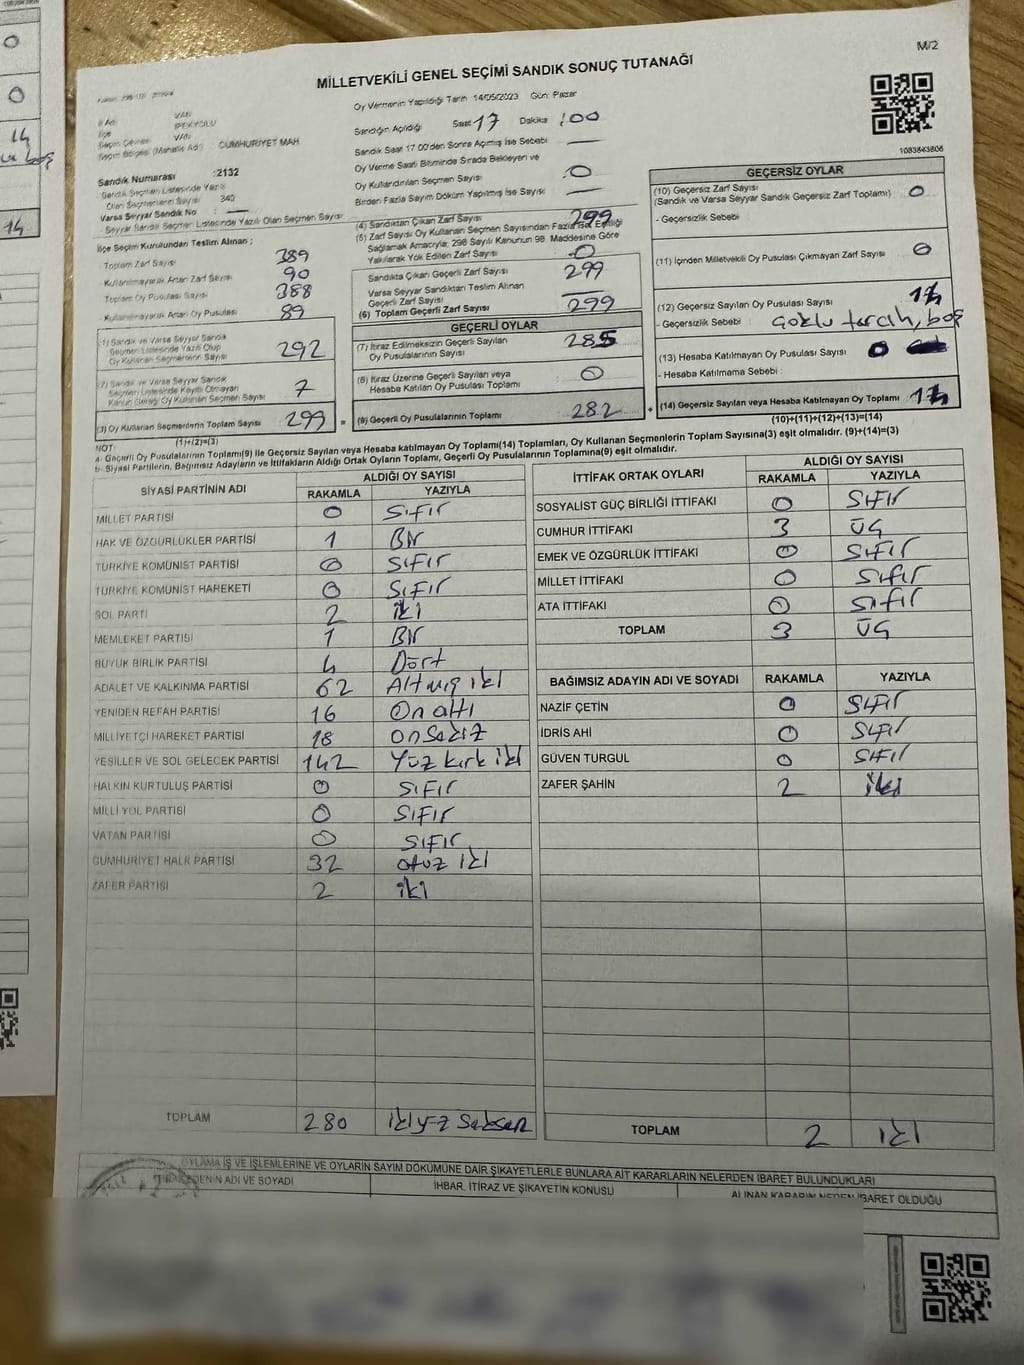 M/2
MİLLETVEKİLİ GENEL SEÇİMİ SANDIK SONUÇ TUTANAĞI
İl Adı VAN
İlçe İPEKYOLU
Seçim Çevresi VAN
Seçim Bölgesi (Mahalle Adı) CUMHURİYET MAH.
Sandık Numarası :2132
Sandık Seçmen Listesinde Yazılı
Olan Seçmenlerin Sayısı 340
Varsa Seyyar Sandık No :
Seyyar Sandık Seçmen Listesinde Yazılı Olan Seçmen Sayısı
İlçe Seçim Kurulundan Teslim Alınan ;
- Toplam Zarf Sayısı 389
- Kullanılmayarak Artan Zarf Sayısı 90
- Toplam Oy Pusulası Sayısı 388
- Kullanılmayarak Artan Oy Pusulası 89
(1) Sandık ve Varsa Seyyar Sandık
Seçmen Listesinde Yazılı Olup
Oy Kullanan Seçmenlerin Sayısı 292
(2) Sandık ve Varsa Seyyar Sandık
Seçmen Listesinde Kayıtlı Olmayan
Kanun Gereği Oy Kullanan Seçmen Sayısı 7
(3) Oy Kullanan Seçmenlerin Toplam Sayısı 299
(1)+(2)=(3)
Oy Vermenin Yapıldığı Tarih 14/05/2023 Gün: Pazar
Sandığın Açıldığı Saat 17 Dakika :00
Sandık Saat 17.00'den Sonra Açılmış İse Sebebi —
Oy Verme Saati Bitiminde Sırada Bekleyen ve
Oy Kullandırılan Seçmen Sayısı 0
Birden Fazla Sayım Döküm Yapılmış İse Sayısı —
(4) Sandıktan Çıkan Zarf Sayısı 299
(5) Zarf Sayısı Oy Kullanan Seçmen Sayısından Fazla ise Eşitliği
Sağlamak Amacıyla, 298 Sayılı Kanunun 98. Maddesine Göre
Yakılarak Yok Edilen Zarf Sayısı 0
Sandıkta Çıkan Geçerli Zarf Sayısı 299
Varsa Seyyar Sandıktan Teslim Alınan
Geçerli Zarf Sayısı —
(6) Toplam Geçerli Zarf Sayısı 299
GEÇERLİ OYLAR
(7) İtiraz Edilmeksizin Geçerli Sayılan
Oy Pusulalarının Sayısı 285
(8) İtiraz Üzerine Geçerli Sayılan veya
Hesaba Katılan Oy Pusulası Toplamı 0
(9) Geçerli Oy Pusulalarının Toplamı 282
GEÇERSİZ OYLAR
(10) Geçersiz Zarf Sayısı
(Sandık ve Varsa Seyyar Sandık Geçersiz Zarf Toplamı) 0
- Geçersizlik Sebebi
(11) İçinden Milletvekili Oy Pusulası Çıkmayan Zarf Sayısı 0
(12) Geçersiz Sayılan Oy Pusulası Sayısı
- Geçersizlik Sebebi boş
(13) Hesaba Katılmayan Oy Pusulası Sayısı 0
- Hesaba Katılmama Sebebi :
(14) Geçersiz Sayılan veya Hesaba Katılmayan Oy Toplamı
(10)+(11)+(12)+(13)=(14)
NOT:
a- Geçerli Oy Pusulalarının Toplamı(9) ile Geçersiz Sayılan veya Hesaba katılmayan Oy Toplamı(14) Toplamları, Oy Kullanan Seçmenlerin Toplam Sayısına(3) eşit olmalıdır. (9)+(14)=(3)
b- Siyasi Partilerin, Bağımsız Adayların ve İttifakların Aldığı Ortak Oyların Toplamı, Geçerli Oy Pusulalarının Toplamına(9) eşit olmalıdır.
SİYASİ PARTİNİN ADI ALDIĞI OY SAYISI
RAKAMLA YAZIYLA
MİLLET PARTİSİ 0 Sıfır
HAK VE ÖZGÜRLÜKLER PARTİSİ 1 Bir
TÜRKİYE KOMÜNİST PARTİSİ 0 Sıfır
TÜRKİYE KOMÜNİST HAREKETİ 0 Sıfır
SOL PARTİ 2 iki
MEMLEKET PARTİSİ 1 Bir
BÜYÜK BİRLİK PARTİSİ 4 Dört
ADALET VE KALKINMA PARTİSİ 62 Altmış iki
YENİDEN REFAH PARTİSİ 16 On altı
MİLLİYETÇİ HAREKET PARTİSİ 18 on sekiz
YEŞİLLER VE SOL GELECEK PARTİSİ 142 Yüz kırk iki
HALKIN KURTULUŞ PARTİSİ 0 Sıfır
MİLLİ YOL PARTİSİ 0 Sıfır
VATAN PARTİSİ 0 Sıfır
CUMHURİYET HALK PARTİSİ 32 otuz iki
ZAFER PARTİSİ 2 iki
TOPLAM 280 ikiyüz seksen
İTTİFAK ORTAK OYLARI ALDIĞI OY SAYISI
RAKAMLA YAZIYLA
SOSYALİST GÜÇ BİRLİĞİ İTTİFAKI 0 Sıfır
CUMHUR İTTİFAKI 3 Üç
EMEK VE ÖZGÜRLÜK İTTİFAKI 0 Sıfır
MİLLET İTTİFAKI 0 Sıfır
ATA İTTİFAKI 0 Sıfır
TOPLAM 3 Üç
BAĞIMSIZ ADAYIN ADI VE SOYADI RAKAMLA YAZIYLA
NAZİF ÇETİN 0 Sıfır
İDRİS AHİ 0 Sıfır
GÜVEN TURGUL 0 Sıfır
ZAFER ŞAHİN 2 iki
TOPLAM 2 iki
OYLAMA İŞ VE İŞLEMLERİNE VE OYLARIN SAYIM DÖKÜMÜNE DAİR ŞİKAYETLERLE BUNLARA AİT KARARLARIN NELERDEN İBARET BULUNDUKLARI
ADI VE SOYADI İHBAR, İTİRAZ VE ŞİKAYETİN KONUSU ALINAN KARARIN NEDEN İBARET OLDUĞU